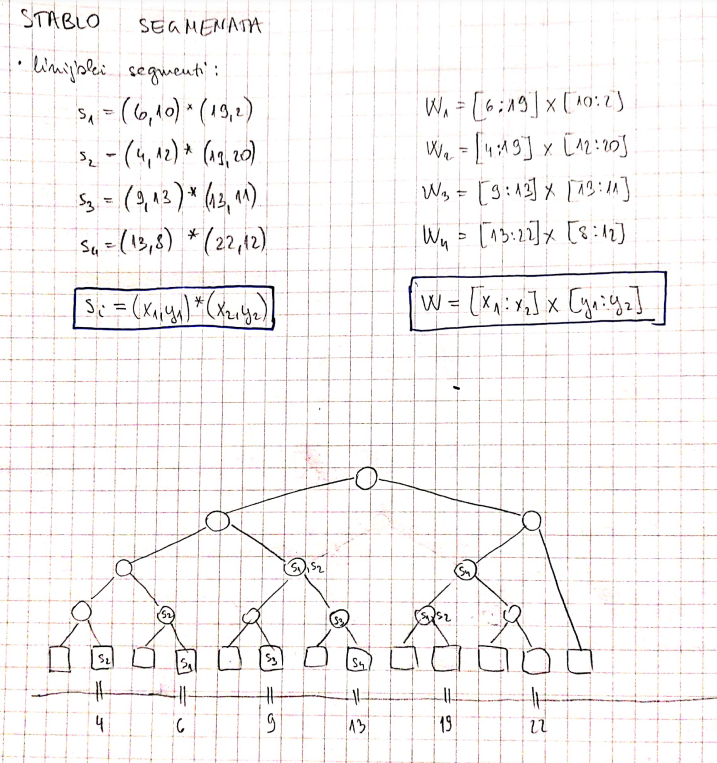 STABLO SEGMENATA
• linijski segmenti:
s₁ = (6,10) * (19,2)
s₂ - (4,12) * (19,20)
s₃ = (9,13) * (13,11)
s₄ = (13,8) * (22,12)
sᵢ = (x₁,y₁) * (x₂,y₂)
W₁ = [6:19] x [10:2]
W₂ = [4:19] x [12:20]
W₃ = [9:13] x [13:11]
W₄ = [13:22] x [8:12]
W = [x₁:x₂] x [y₁:y₂]
s₁,s₂
s₄
s₂
s₃
s₁,s₂
s₂
s₁
s₃
s₄
4 6 9 13 19 22